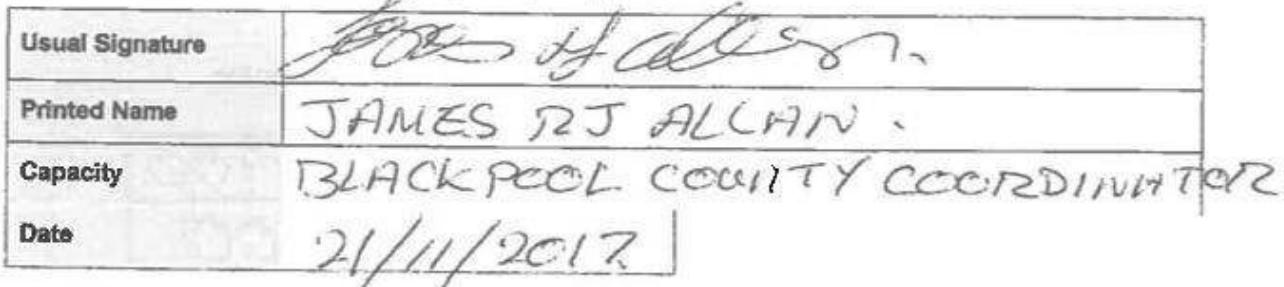 Usual Signature
Printed Name JAMES RJ ALLAN.
Capacity BLACKPOOL COUNTY COORDINATOR
Date 21/11/2017